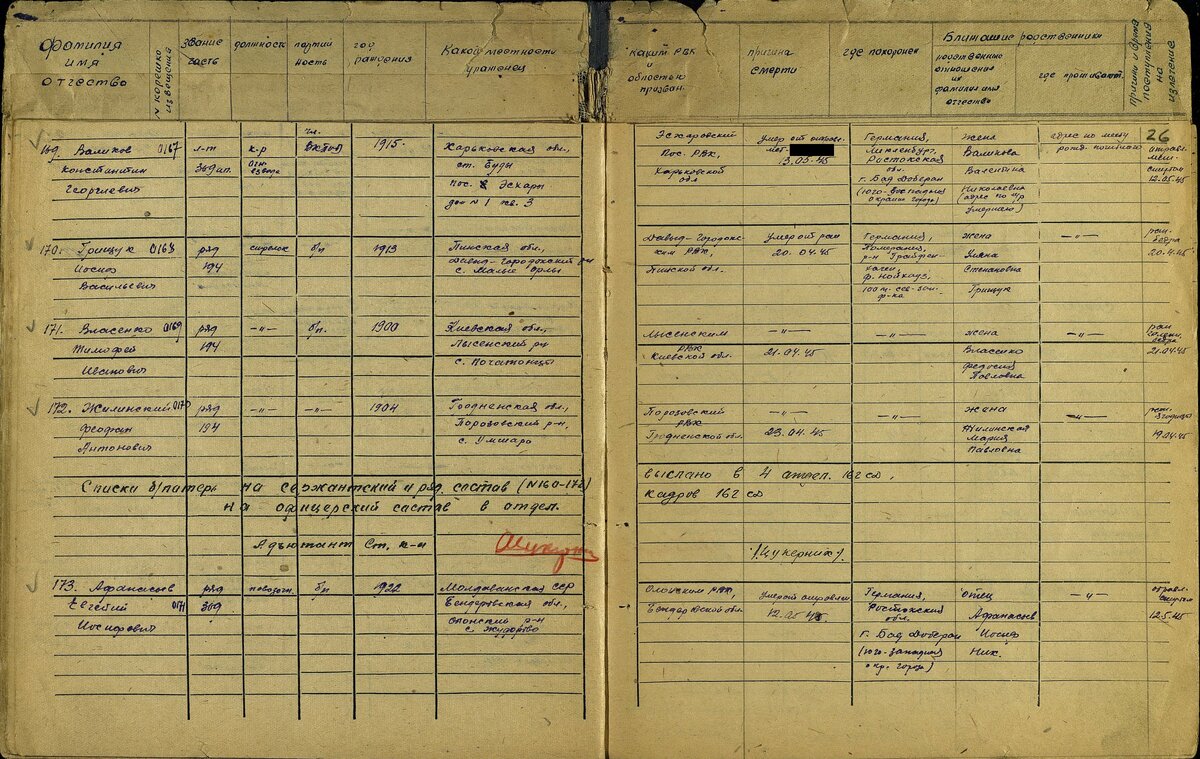 Фамилия
имя
отчество
N корешка
извещения
Звание
часть
должность
партий
ность
год
рождения
Какой местности
уроженец
каким РВК
и
областью
призван.
причина
смерти
где похоронен
Ближайшие родственники
родственные
отношения
их
фамилия имя
отчество
где проживают
26
169. Валиков 0167
Константин
Георгиевич
л-т
к-р
взвода
чл.
ВКП(б)
1915-
Харьковская обл,
ст. Буды
пос. Эсхарь
дом N 1 кв. 3
Эсхаровский
Пос. РВК,
Харьковской
обл
Умер от
3.05.45
Германия,
Мекленбург,
Ростокская
обл.
г. Бад Доберан
(юго-западная
окраина города)
Жена
Валикова
Валентина
Николаевна
адрес по месту
рожд.
12.05.45
170. Грищук 0168
Иосиф
Васильевич
ряд
194
стрелок
б/п
1913
Пинская обл,
Давид-Городокский р-н
с. Малые Орлы
Давид-Городокс-
ким РВК,
Пинской обл.
Умер от ран
20.04.45
Германия,
Померания,
р-н Грайфен-
хаген,
100 м. сев-зап.
ф-ка
жена
Степановна
Грищук
— " —
20.4.45
171. Власенко 0169
Тимофей
Иванович
ряд
194
— " —
б/п.
1900
Киевская обл,
Лысенский р-н
с. Почапинцы
Лысенским
РВК
Киевской обл.
— " —
21.04.45
— " —
жена
Власенко
Федосия
Павловна
— " —
21.04.45
172. Жилинский 0170
Антонович
ряд
194
— " —
— " —
1904
Гродненская обл,
Порозовский р-н.
Порозовский
РВК
Гродненской обл.
— " —
23.04.45
— " —
жена
Жилинская
Мария
Павловна
— " —
19.04.45
Списки б/потерь на сержантский и ряд. состав (N 160-172)
на офицерский состав в отдел.
выслано в 4 отдел. 162 сд,
кадров 162 сд
Адъютант Ст. к-н
/Цукерник/.
173. Афанасьев
Евгений 0171
Иосифович
ряд
повозочн.
б/п
1922
Молдаванская ССР
Бендеровская обл,
р-н
Бендерской обл.
12.05.45
Германия,
Ростокский
обл.
г. Бад Доберан
(юго-западная
окр. города)
отец
Афанасьев
Иосиф
Ник.
— " —
12.5.45